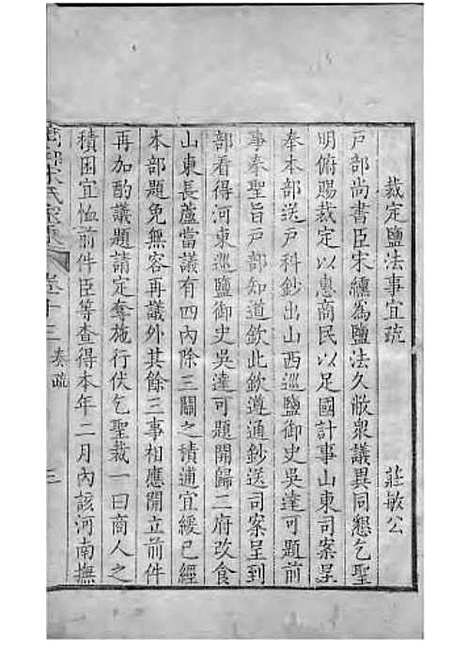 裁定鹽法事宜疏　莊敏公
戶部尚書臣宋纁為鹽法久敝衆議異同懇乞聖
明俯賜裁定以惠商民以足國計事山東司案呈
奉本部送戶科鈔出山西巡鹽御史吳達可題前
事奉聖旨戶部知道欽此欽遵通鈔送司案呈到
部看得河東巡鹽御史吳達可題開歸二府改食
山東長蘆當議有四內除三關之積逋宜緩已經
本部題免無容再議外其餘三事相應開立前件
再加酌議題請定奪施行伏乞聖裁一曰商人之
積困宜恤前件臣等查得本年二月內該河南撫
卷十三　奏疏　三